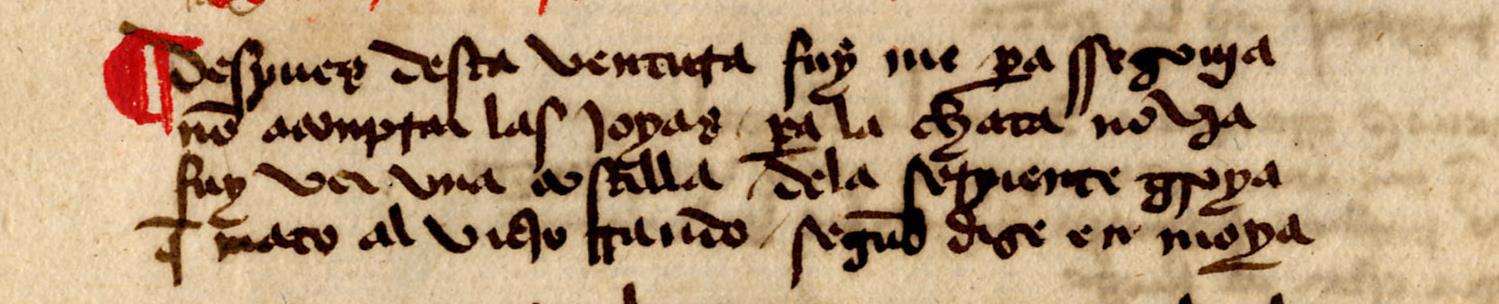 ¶ Despues desta ventura fuy me pa ssegouja
nō a conprar las Joyas / pa la chata nouja
fuy ver vna costilla / dela serpiente groya
q̄ mato al viejo rrando / segūd dize en moya